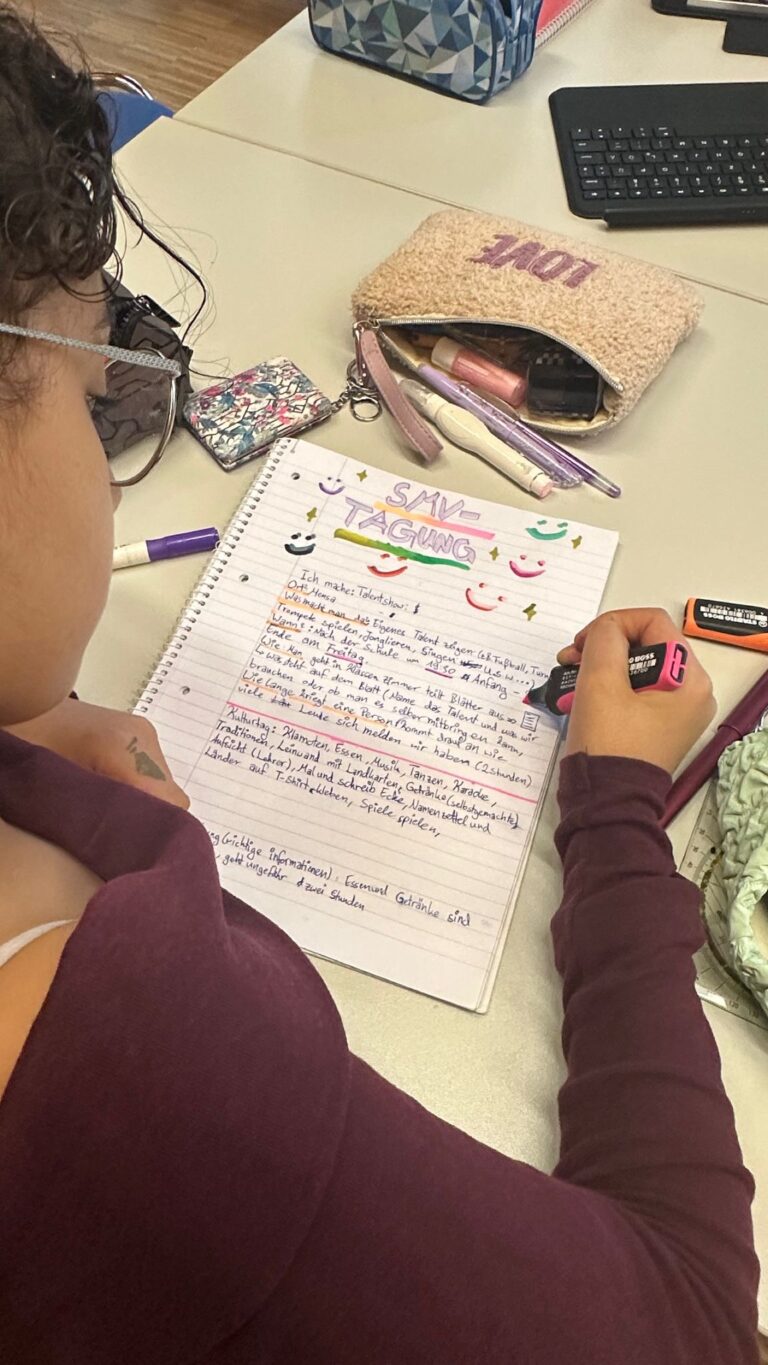 LOVE
SMV-
TAGUNG
Ich mache: Talentshow:
Ort: Mensa
Was macht man da: Eigenes Talent zeigen (z.B. Fußball, Turn
Trompete spielen, Jonglieren, Singen u.s.w...)
Wann?: Nach der Schule um Anfang -
Ende am Freitag.
Wie: Man geht in Klassenzimmer teilt Blätter aus
was steht auf dem Blatt (Name das Talent und was wir
brauchen oder ob man es selber mitbringen kann,
Wie Lange kriegt eine Person? kommt drauf an wie
viele Leute sich melden wir haben (2 stunden)
Kulturtag: Klamotten, Essen, Musik, Tanzen, Karaoke,
Traditionen, Leinwand mit Landkarten, Getränke (selbstgemachte)
Aufsicht (Lehrer), Mal und schreib Ecke, Namenzettel und
Länder auf T-Shirt kleben, Spiele spielen,
(wichtige informationen): Essen und Getränke sind
, geht ungefähr zwei Stunden
BOSS
STABILO BOSS